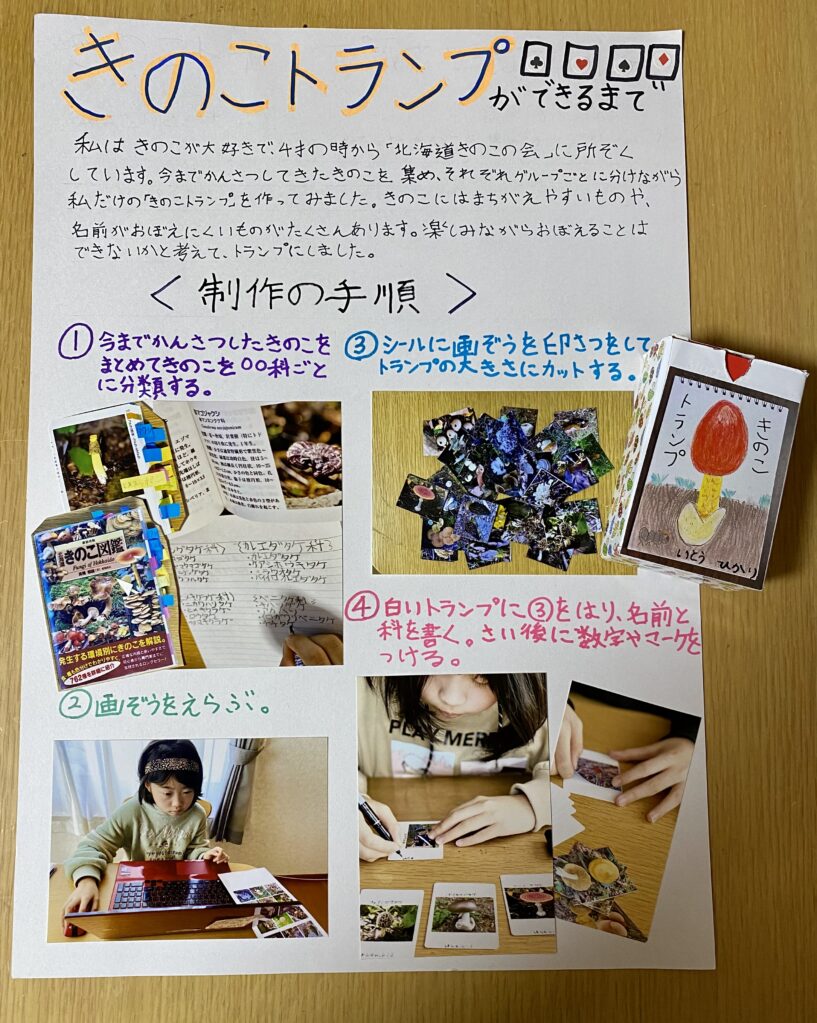 きのこトランプ
ができるまで
私は きのこが大好きで、4才の時から「北海道きのこの会」に所ぞく
しています。今までかんさつしてきたきのこを 集め、それぞれグループごとに分けながら
私だけの「きのこトランプ」を作ってみました。きのこにはまちがえやすいものや、
名前がおぼえにくいものがたくさんあります。楽しみながらおぼえることは
できないかと考えて、トランプにしました。
〈 制作の手順 〉
① 今までかんさつしたきのこを
まとめてきのこを〇〇科ごと
に分類する。
きのこ図鑑
Fungi of Hokkaido
発生する環境別にきのこを解説。
762種を詳細に紹介
カレエダタケ科
② 画ぞうをえらぶ。
③ シールに画ぞうを印さつをして
トランプの大きさにカットする。
きのこ
トランプ
いとう ひかり
④ 白いトランプに③をはり、名前と
科を書く。さい後に数字やマークを
つける。
PLAY MERR